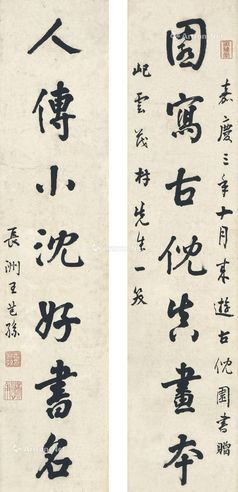 嘉慶三年十月來遊古倪園書贈
園寫古倪真畫本
屺雲茂材先生一笑
人傳小沈好書名
長洲王芑孫